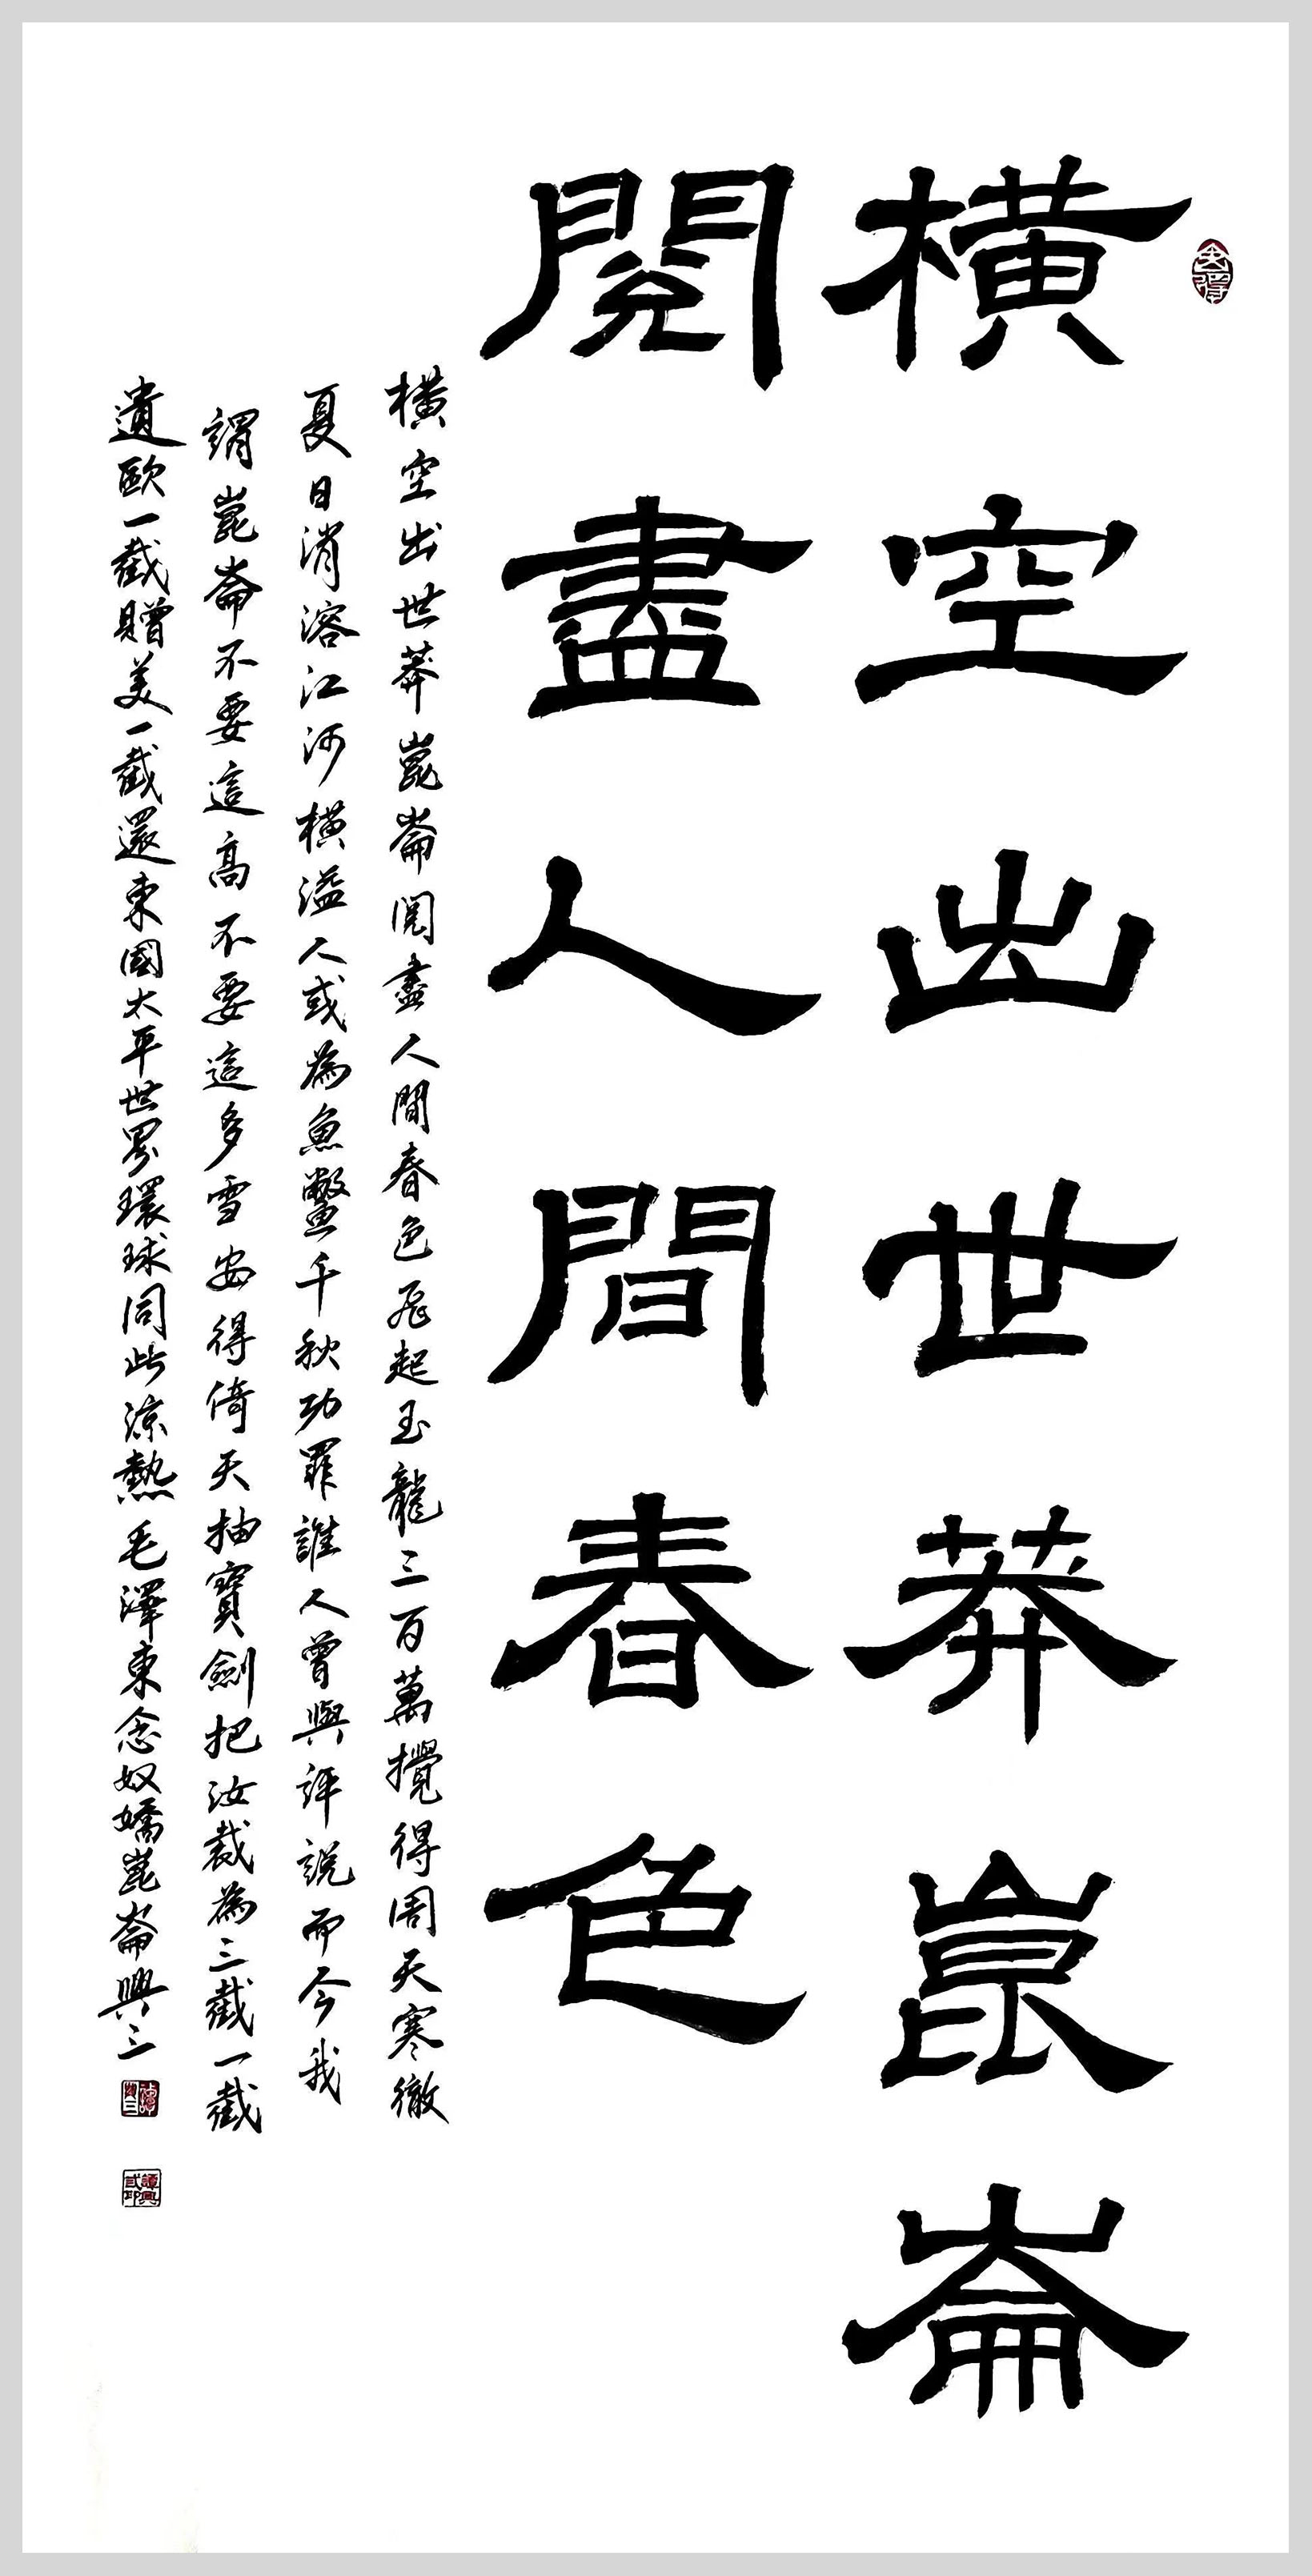 橫空出世莽崑崙
閱盡人間春色
橫空出世莽崑崙閱盡人間春色飛起玉龍三百萬攪得周天寒徹
夏日消溶江河橫溢人或為魚鱉千秋功罪誰人曾與評說而今我
謂崑崙不要這高不要這多雪安得倚天抽寶劍把汝裁為三截一截
遺歐一截贈美一截還東國太平世界環球同此涼熱毛澤東念奴嬌崑崙興三